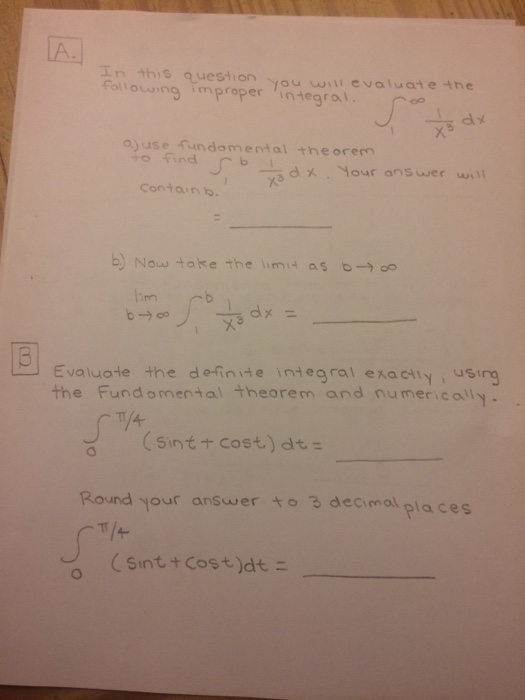 A.
In this question you will evaluate the
following improper integral. ∫₁^∞ 1/x³ dx
a) use fundamental theorem
to find ∫₁^b 1/x³ dx. Your answer will
contain b.
= ______
b.) Now take the limit as b→∞
lim b→∞ ∫₁^b 1/x³ dx = ______
B
Evaluate the definite integral exactly, using
the Fundamental theorem and numerically.
∫₀^π/4 (sint + cost) dt = ______
Round your answer to 3 decimal places
∫₀^π/4 (sint + cost)dt = ______